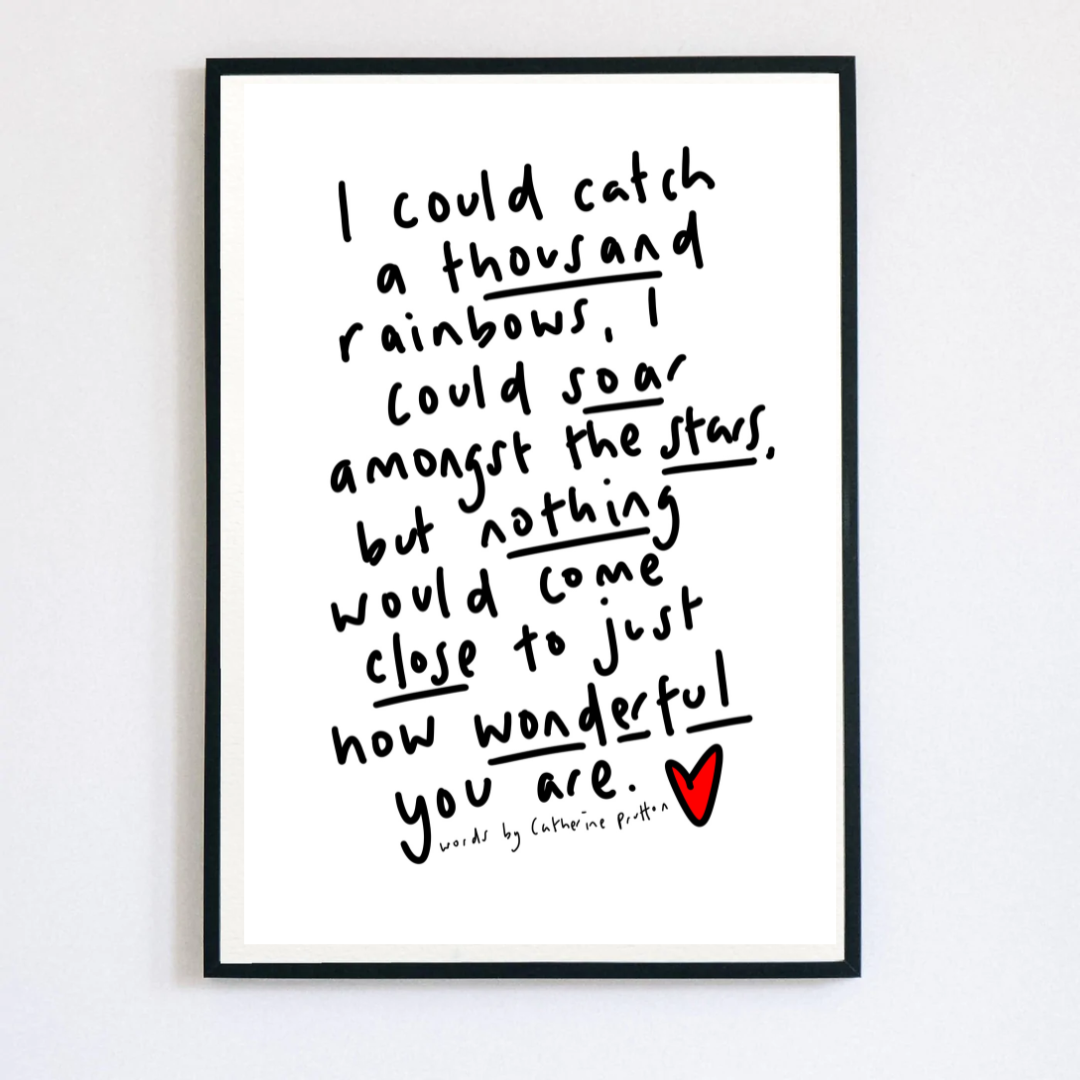 I could catch
a thousand
rainbows, I
could soar
amongst the stars,
but nothing
would come
close to just
how wonderful
you are.
words by Catherine prutton